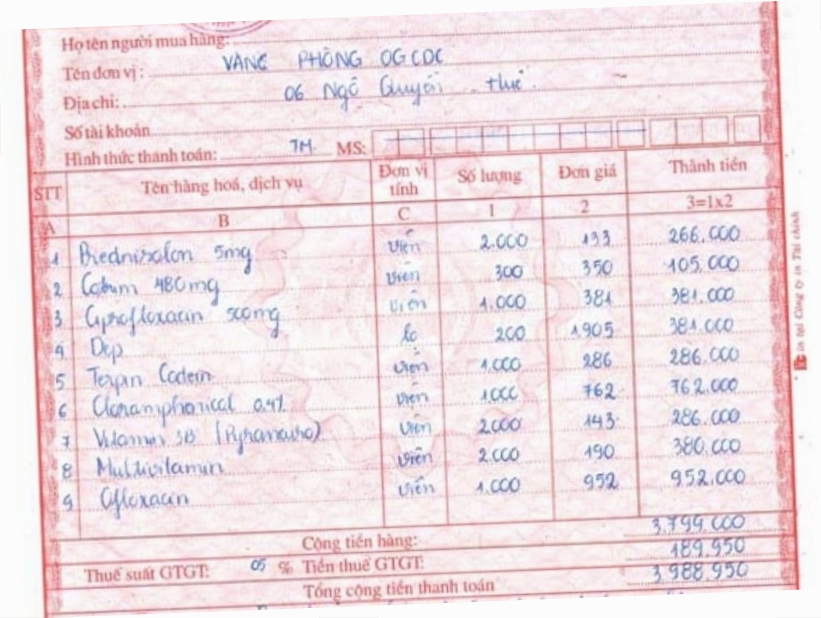 Họ tên người mua hàng:
Tên đơn vị: VĂNG PHÒNG OGCDC
Địa chỉ: 06 Ngô Quyền Huế
Số tài khoản
Hình thức thanh toán: TM MS:
STT Tên hàng hoá, dịch vụ Đơn vị tính Số lượng Đơn giá Thành tiền
A B C 1 2 3=1x2
1 Prednisolon 5mg viên 2.000 133 266.000
2 Cotrim 480mg viên 300 350 105.000
3 Ciprofloxacin 500mg viên 1.000 381 381.000
4 Dep lọ 200 1.905 381.000
5 Terpin Codein viên 1.000 286 286.000
6 Cloramphenical 0.4% viên 1000 762 762.000
7 Vitamin 3B (Pyraneuro) viên 2000 143 286.000
8 Multivitamin viên 2.000 190 380.000
9 Ofloxacin viên 1.000 952 952.000
Cộng tiền hàng: 3.799.000
Thuế suất GTGT: 05 % Tiền thuế GTGT: 189.950
Tổng cộng tiền thanh toán 3.988.950